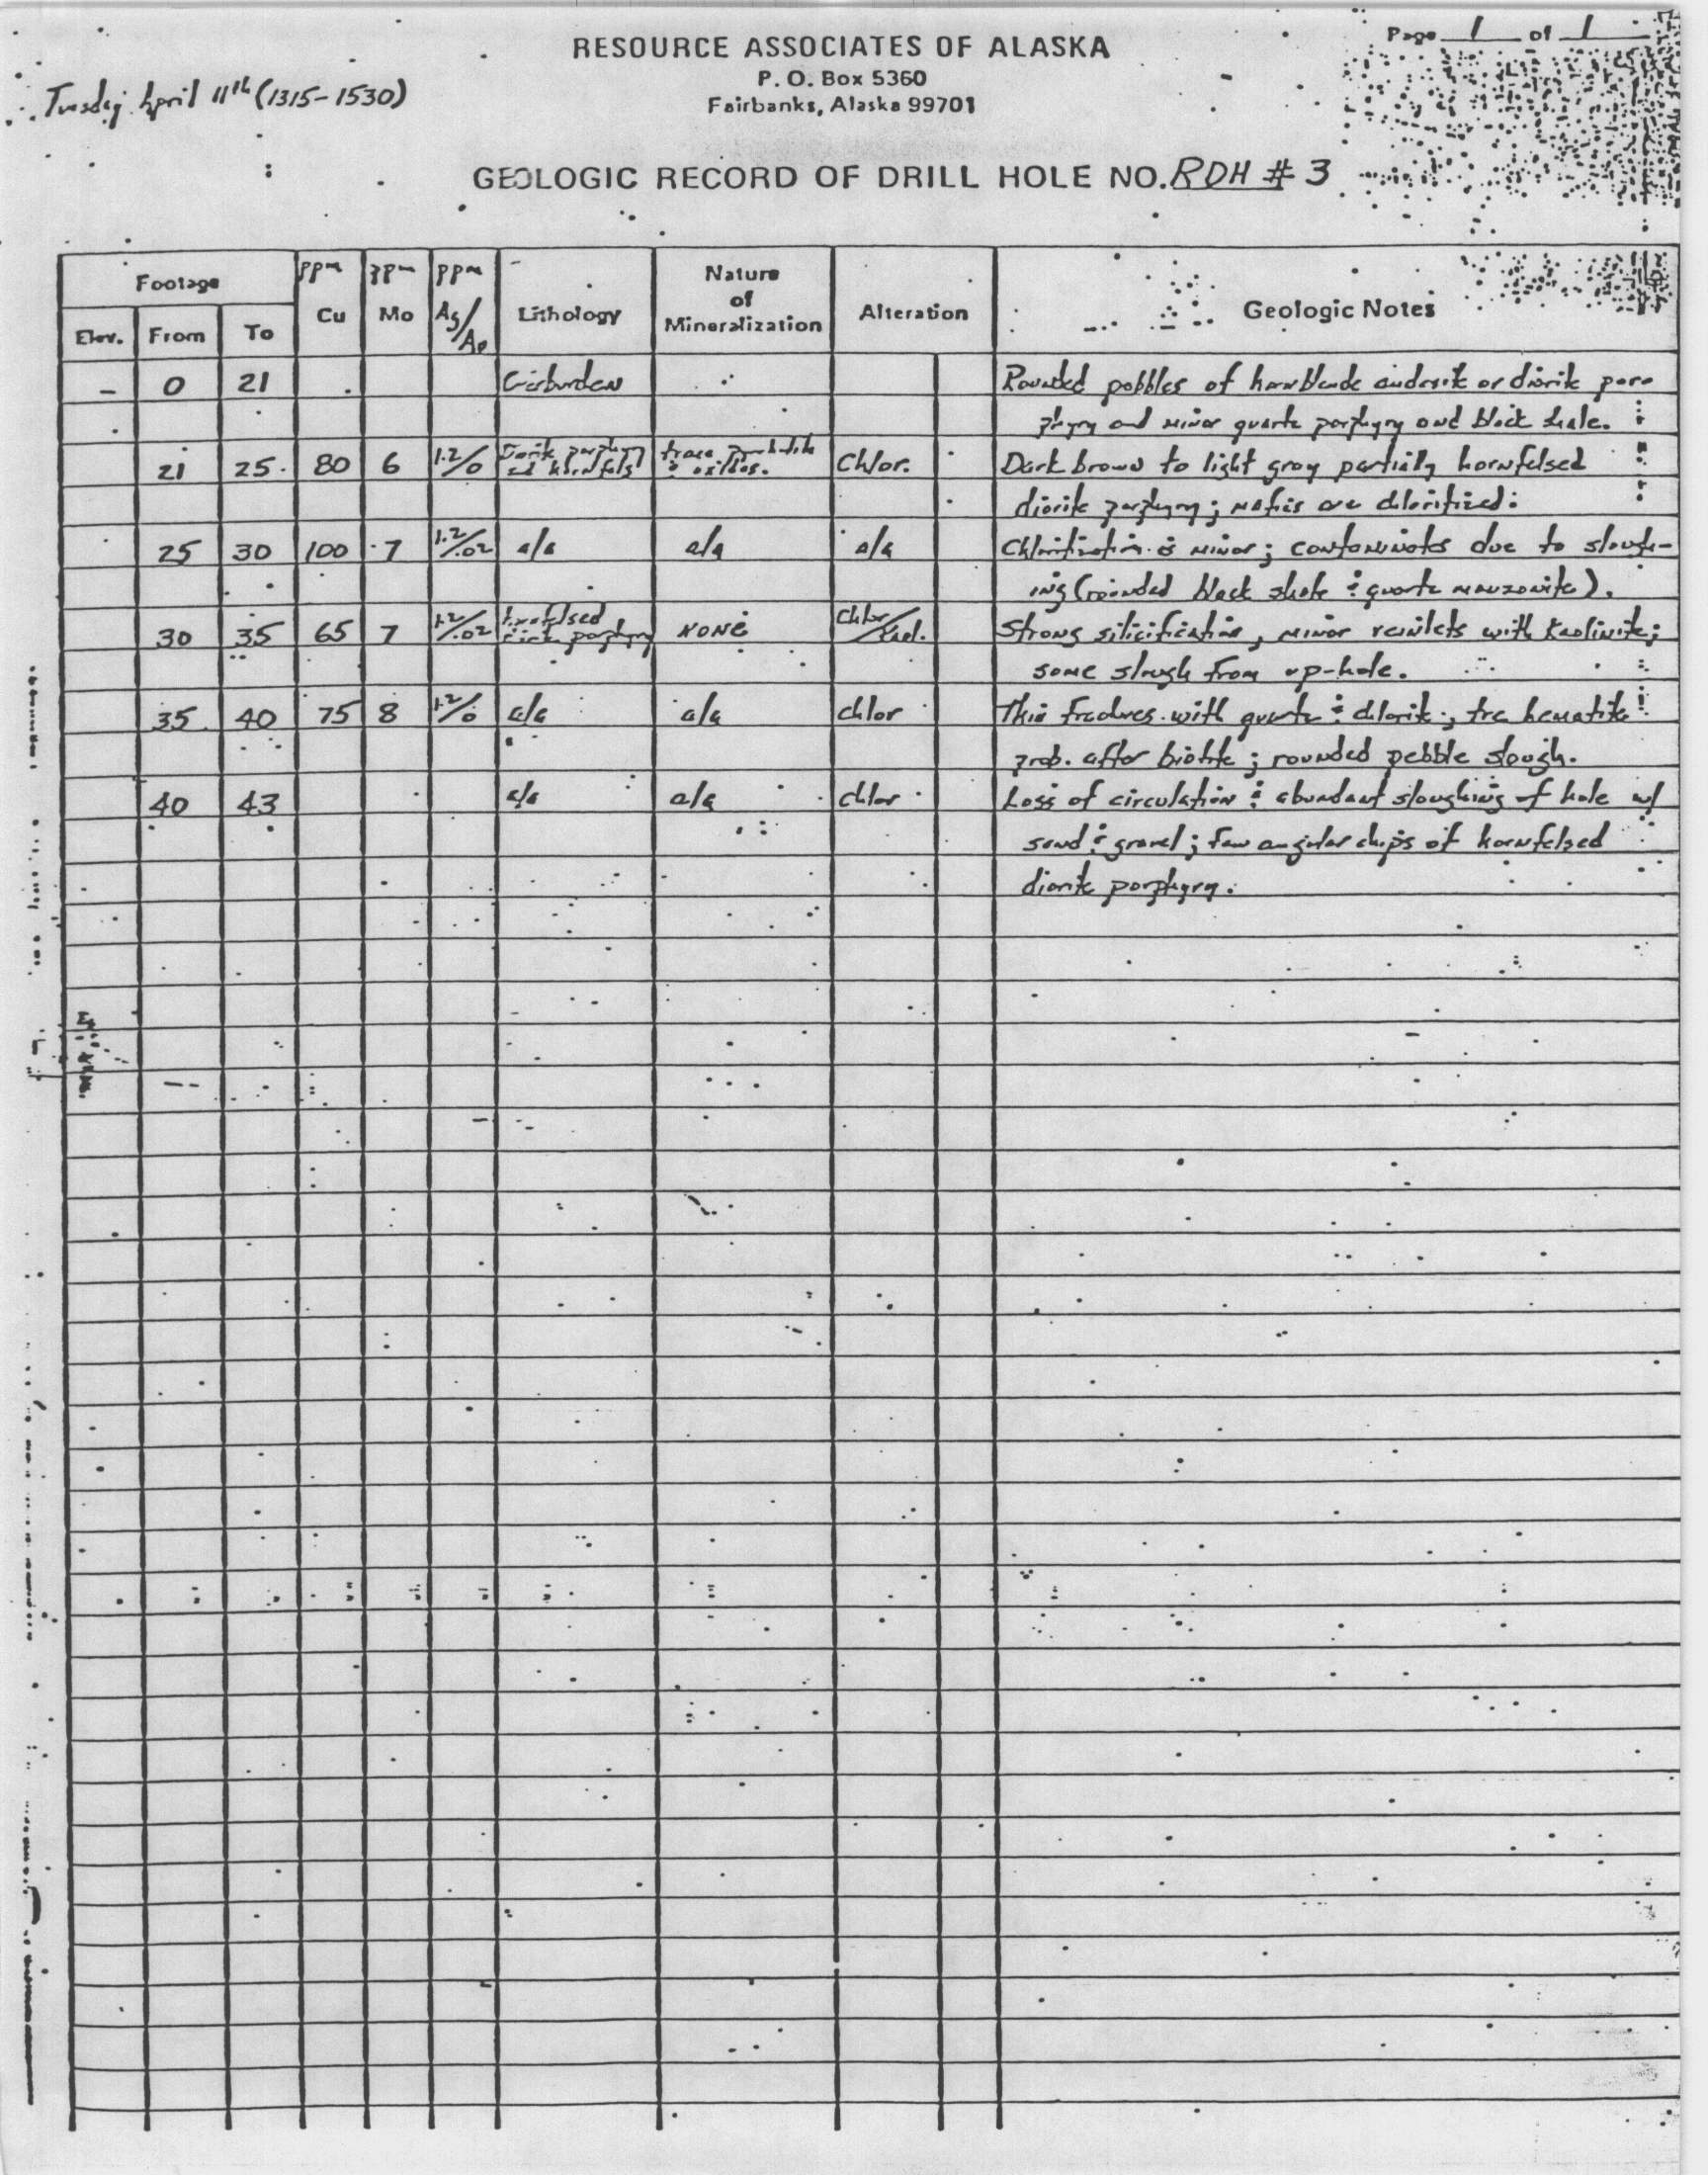 Page 1 of 1
RESOURCE ASSOCIATES OF ALASKA
P. O. Box 5360
Fairbanks, Alaska 99701
Tuesday April 11th (1315-1530)
GEOLOGIC RECORD OF DRILL HOLE NO. RDH # 3
Footage ppm ppm ppm Nature
of
Elev. From To Cu Mo Ag/ Lithology Mineralization Alteration Geologic Notes
- 0 21 Overburden Rounded pebbles of hornblende andesite or diorite por-
phyry and minor quartz porphyry and black shale.
21 25 80 6 1.2/0 Diorite porphyry trace
and hornfels Chlor. Dark brown to light gray partially hornfelsed
diorite porphyry; mafics are chloritized.
25 30 100 7 1.2/.02 a/a a/a a/a Chloritization is minor; contaminates due to slough-
ing (rounded black shale & quartz monzonite).
30 35 65 7 1.2/.02 hornfelsed
diorite porphyry NONE Chlor/ Strong silicification, minor veinlets with kaolinite;
some slough from up-hole.
35 40 75 8 1.2/0 a/a a/a chlor Thin fractures with quartz & chlorite; trc hematite
prob. after biotite; rounded pebble slough.
40 43 a/a a/a chlor Loss of circulation & abundant sloughing of hole w/
sand & gravel; few angular chips of hornfelsed
diorite porphyry.